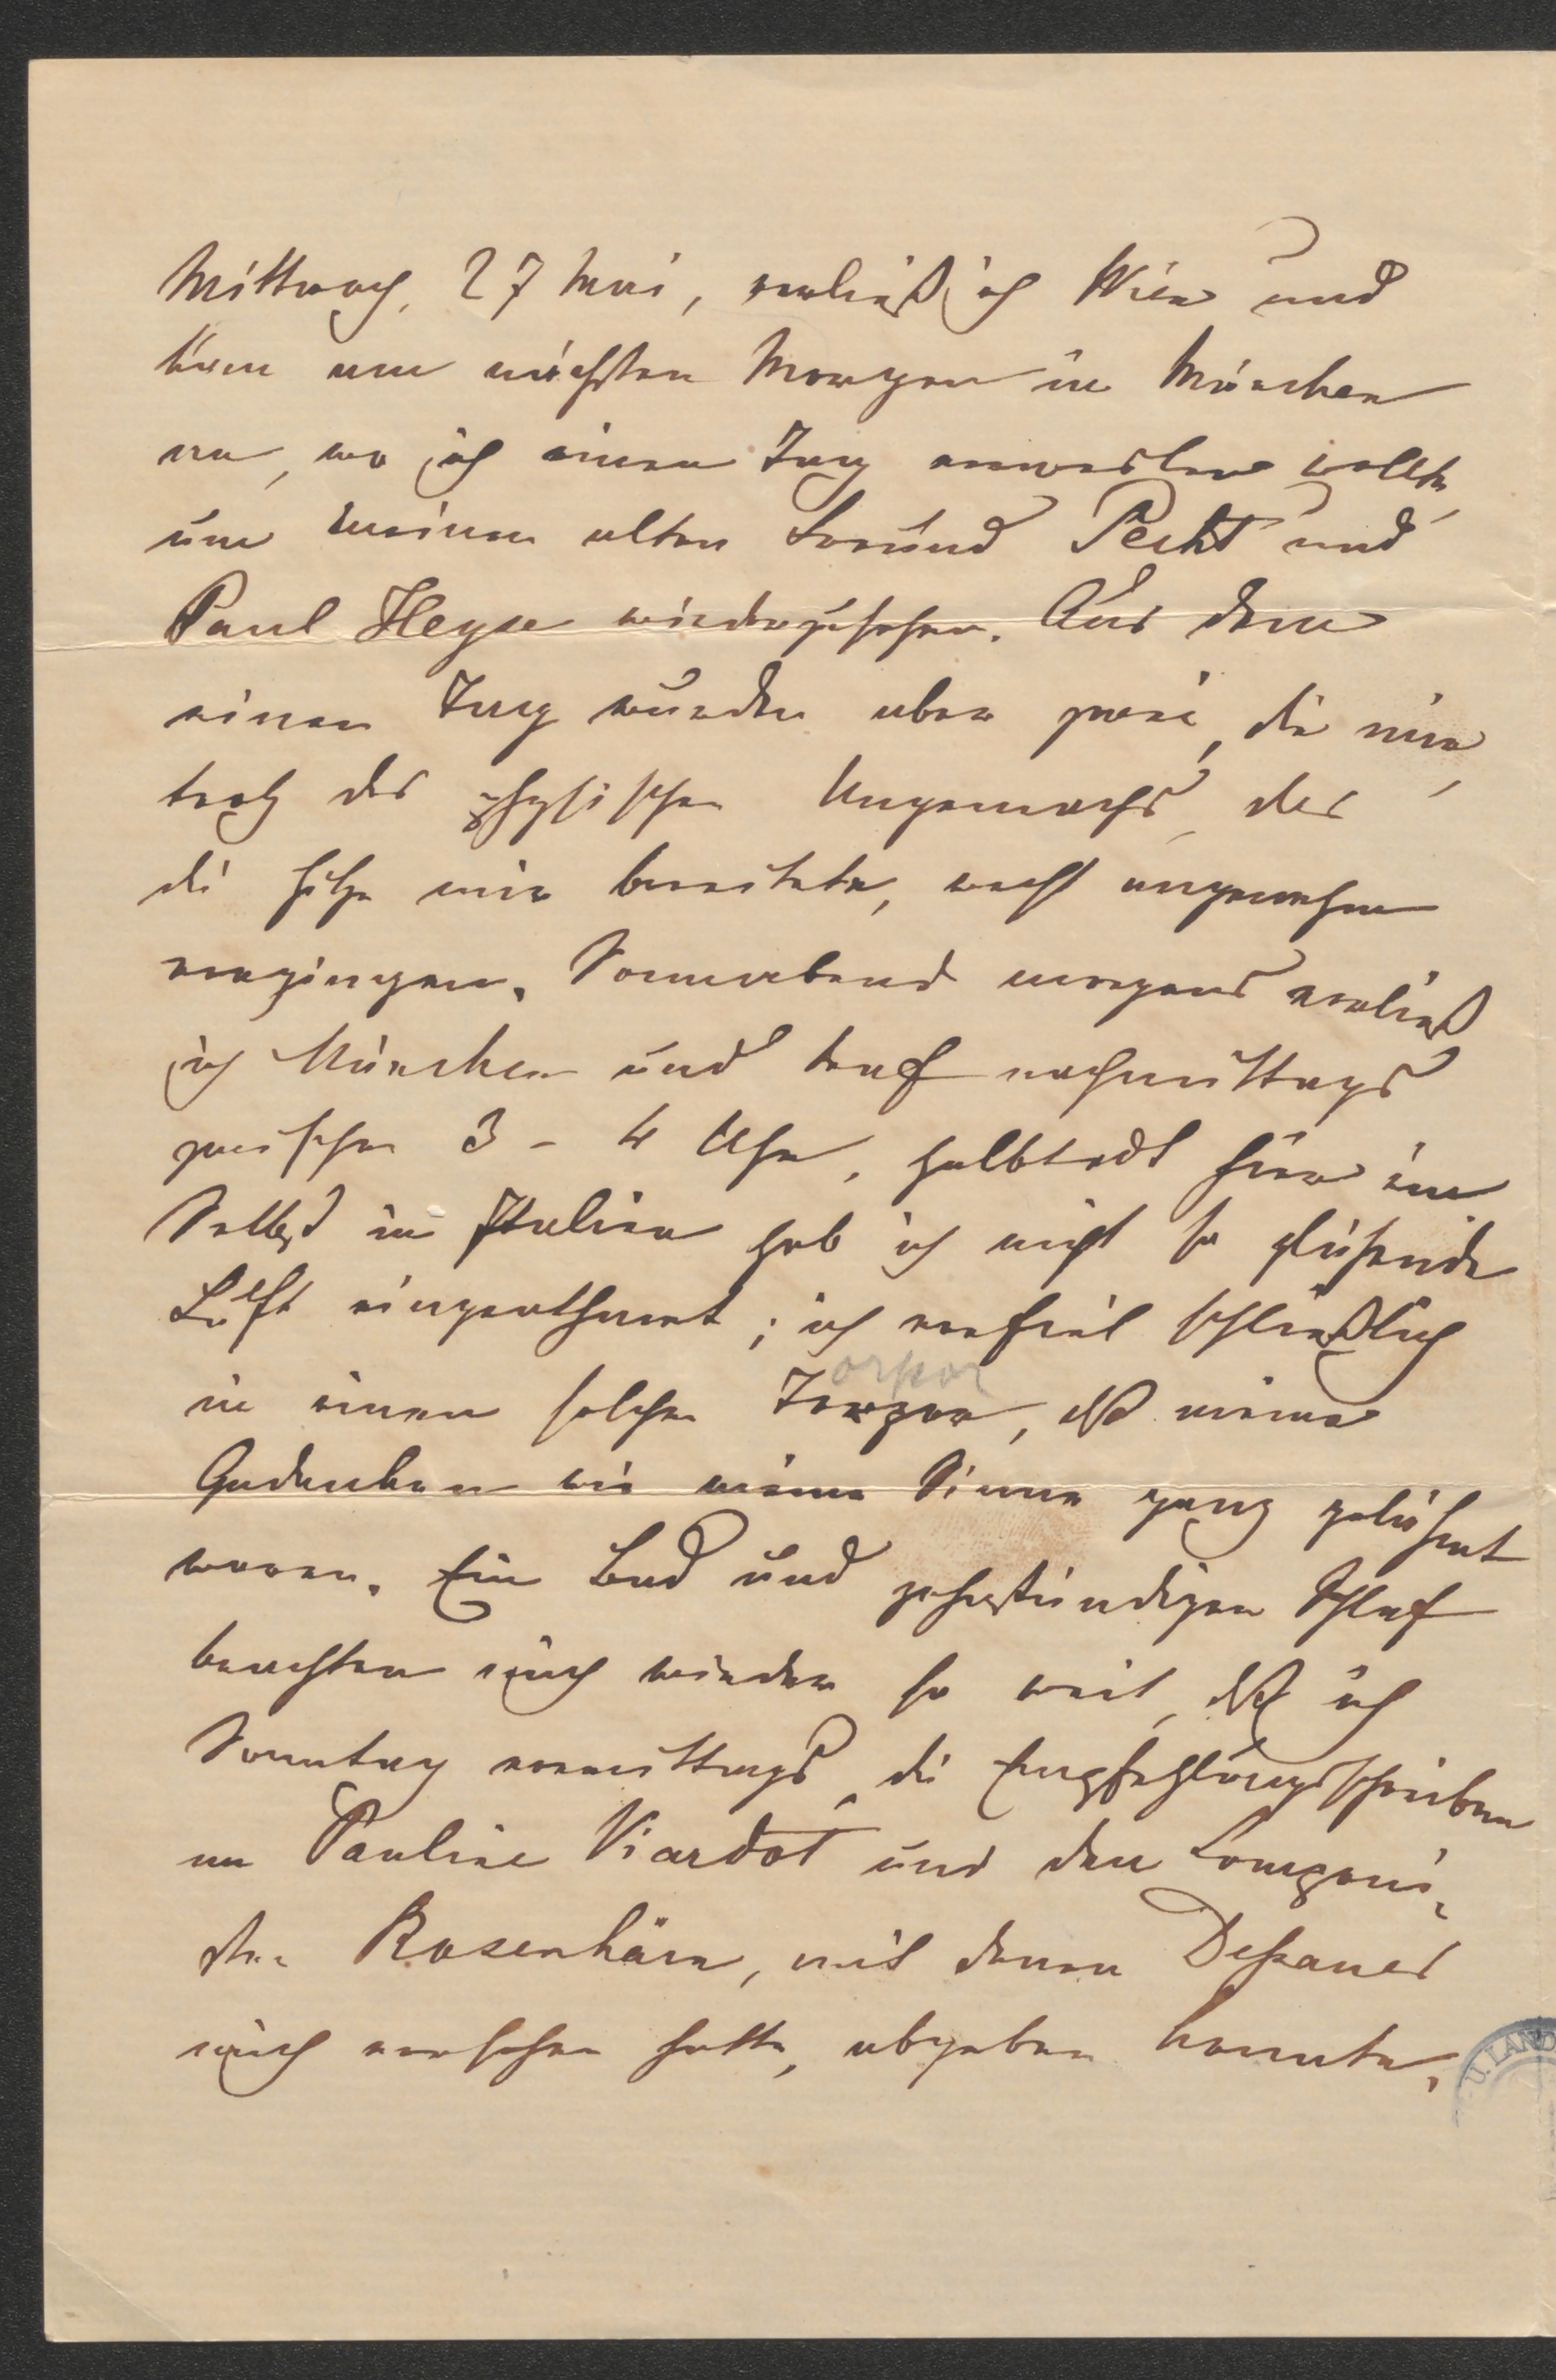 Mittwoch, 27 Mai, verließ ich Wien und
kam am nächsten Morgen in München
an, wo ich einen Tag verweilen wollte,
um meinen alten Freund Pecht und
Paul Heyse wiederzusehen. Aus dem
einen Tag wurden aber zwei, die mir,
trotz des physischen Ungemachs, das
die Hitze mir bereitete, recht angenehm
vergingen. Sonnabend morgens verließ
ich München und traf nachmittags
zwischen 3 - 4 Uhr, halbtodt hier ein
Selbst in Italien hab ich nicht so glühende
Luft eingeathmet; ich verfiel schließlich
orpor
in einen solchen Torpor, dß meine
Gedanken wie meine Sinne ganz gelähmt
waren. Ein Bad und zehnstündigen Schlaf
brachten mich wieder so weit, dß ich
Sonntag vormittags, die Empfehlungsschreiben
an Pauline Viardot und den Componi-
sten Rosenhain, mit denen Dessauer
mich versehen hatte, abgeben konnte.
U. LAND